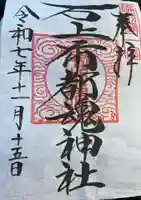 奉拝
石上布都魂神社
令和七年十一月十五日